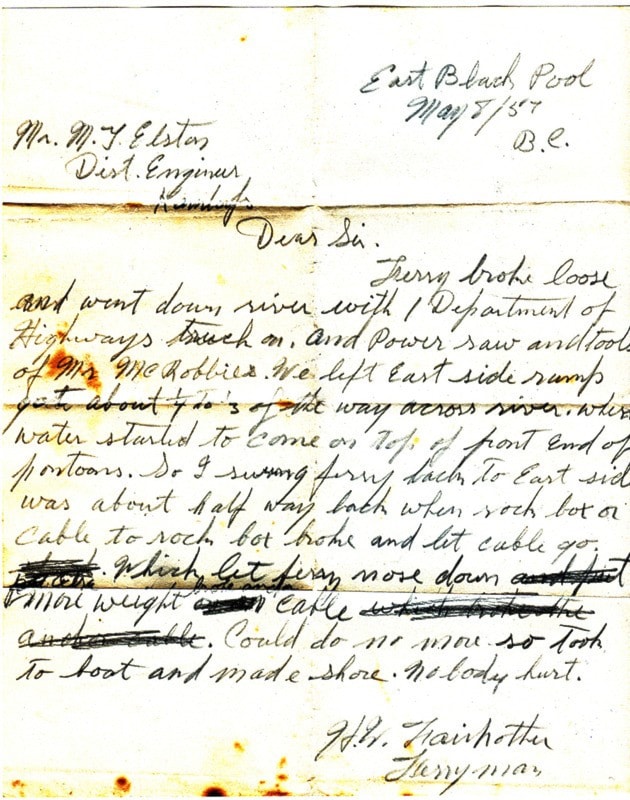 East Black Pool
May 8/57
B.C.
Mr. M. T. Elston
Dist. Engineer
Dear Sir.
Ferry broke loose
and went down river with 1 Department of
Highways truck on. And Power saw and tools
of Mr McRobbies. We left East side ramp
about of the way across river. when
water started to come on top of front end of
pontoons. So I swung ferry back to East side
was about half way back when rock box or
cable to rock box broke and let cable go.
Which let ferry nose down
more weight cable
. Could do no more so took
to boat and made shore. Nobody hurt.
H.W.
Ferryman